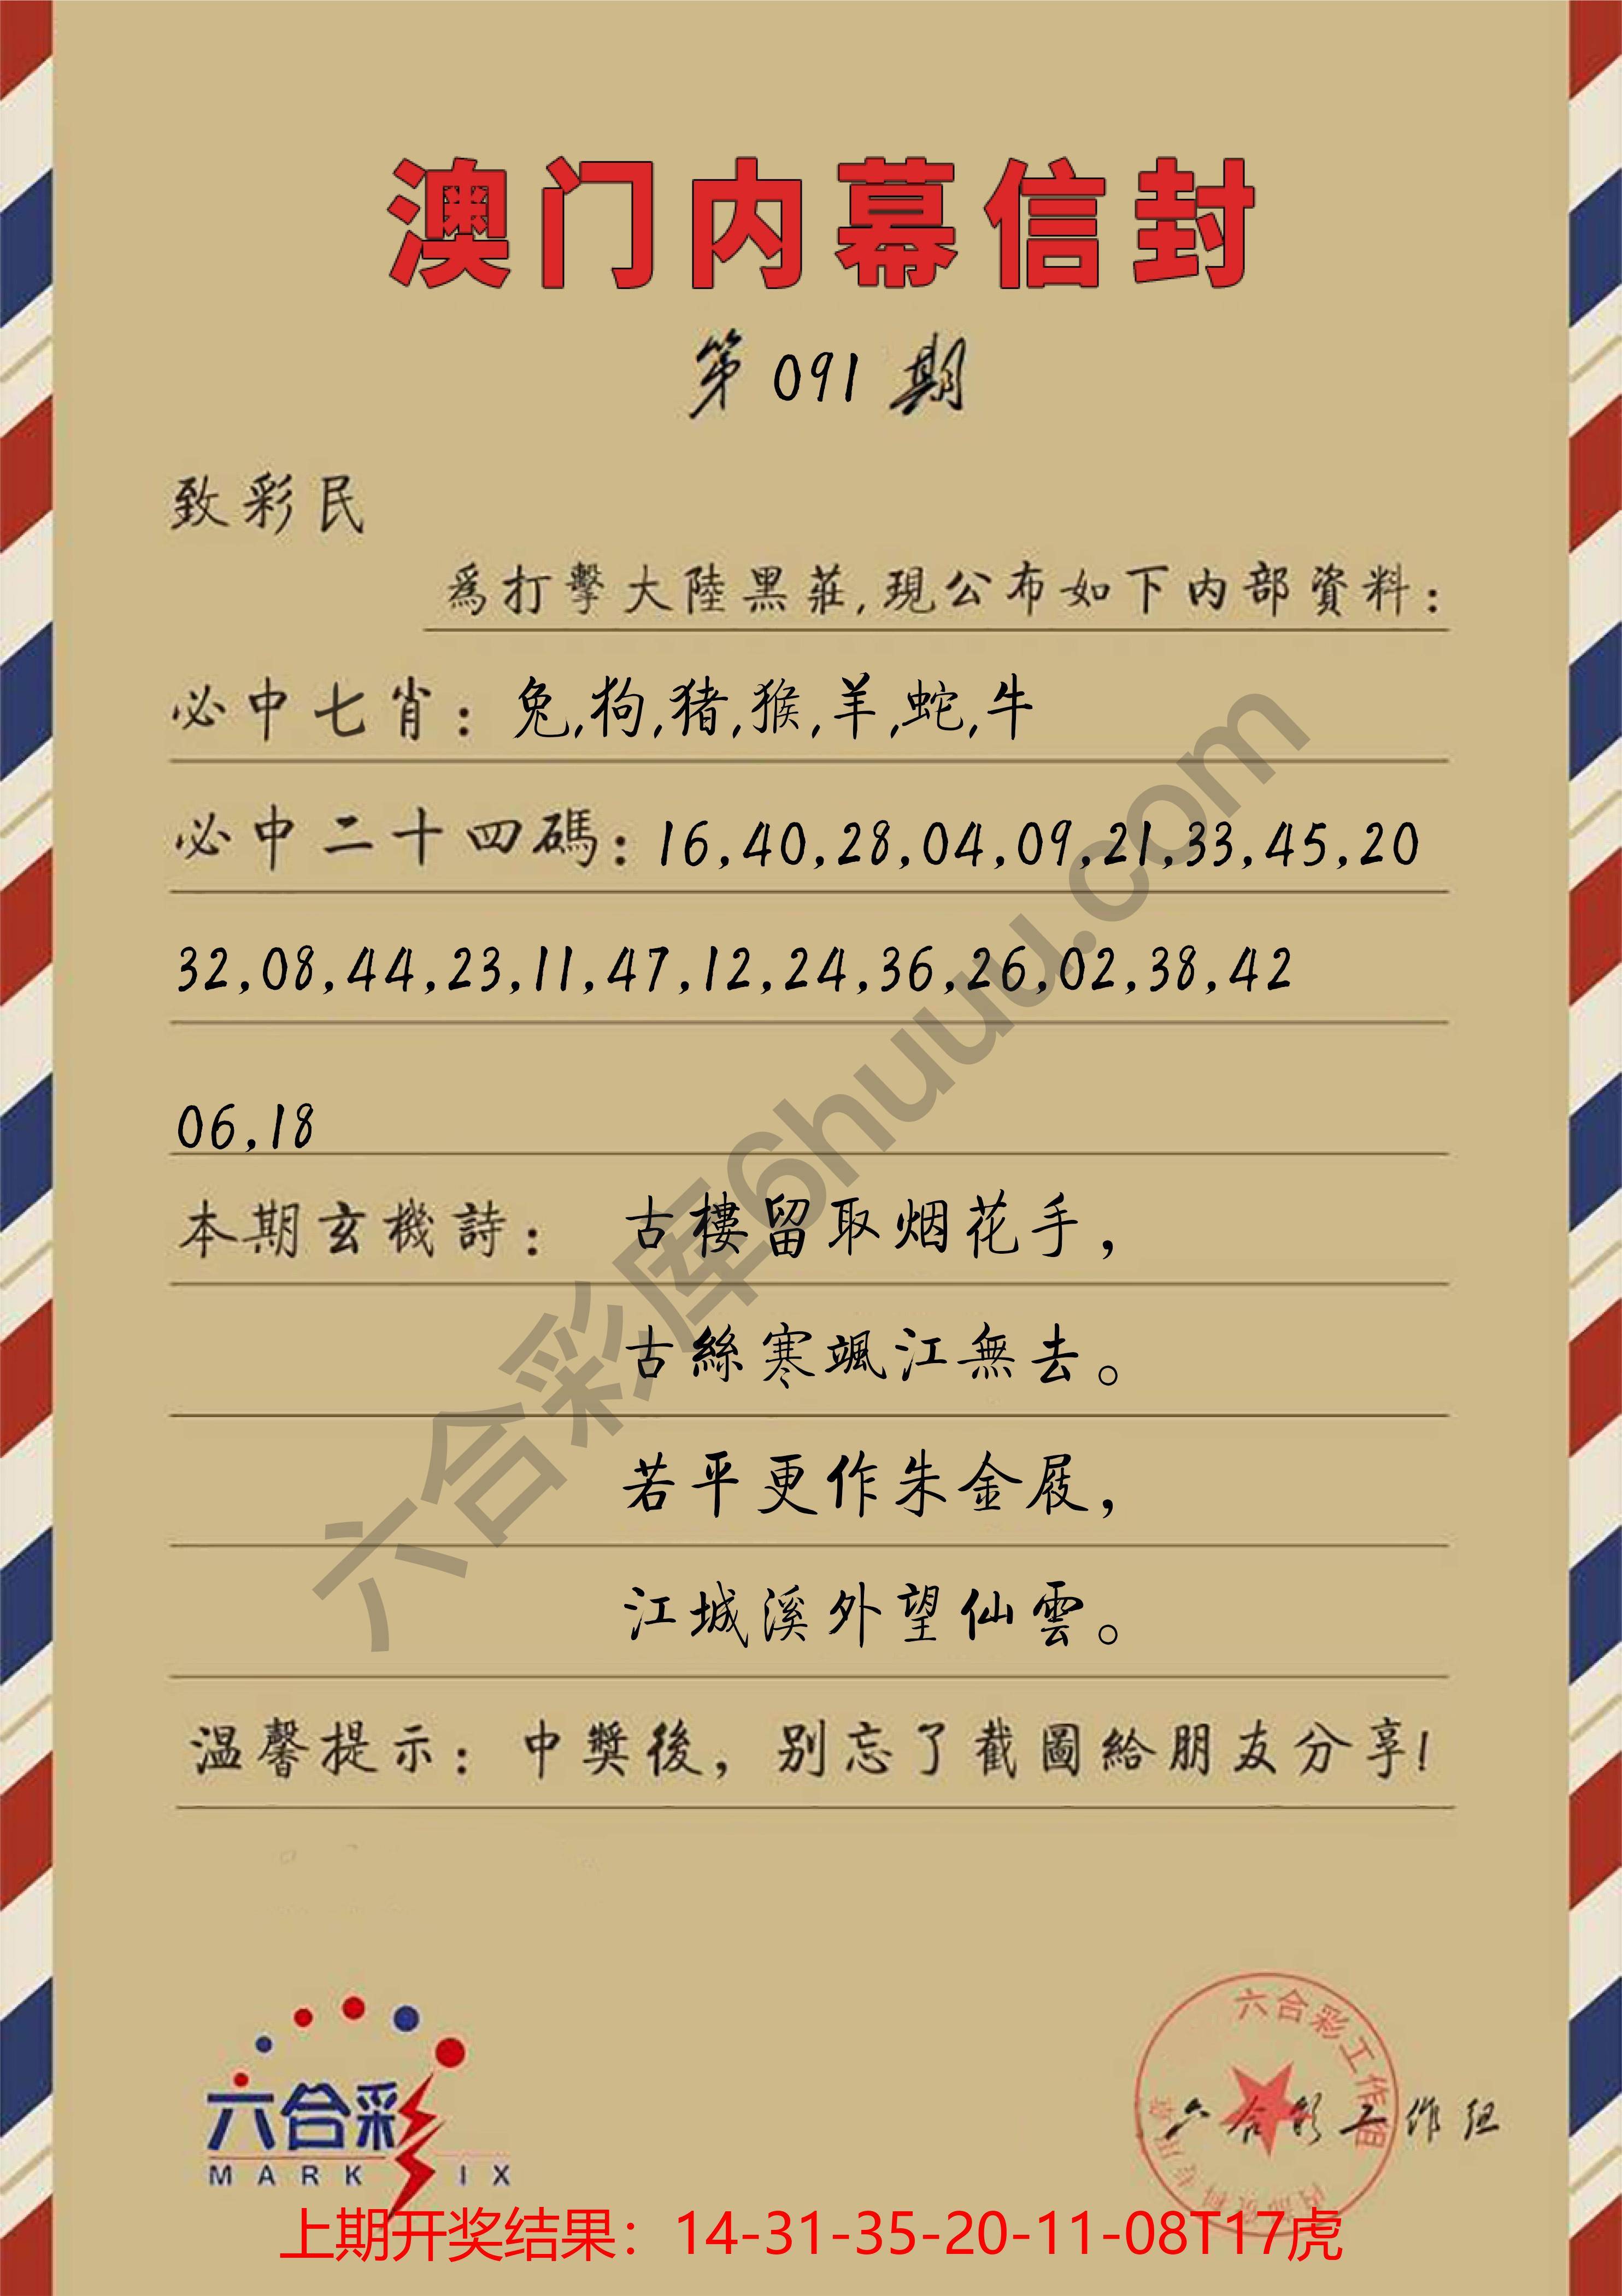 澳门内幕信封
第 091 期
致彩民
爲打擊大陸黑莊,現公布如下内部資料:
必中七肖: 兔,狗,猪,猴,羊,蛇,牛
必中二十四碼: 16,40,28,04,09,21,33,45,20
32,08,44,23,11,47,12,24,36,26,02,38,42
06,18
本期玄機詩: 古樓留取烟花手,
古絲寒颯江無去。
若平更作朱金屐,
江城溪外望仙雲。
温馨提示: 中獎後, 别忘了截圖給朋友分享!
六合彩库6huuu.com
六合彩
MARK IX
六合彩工作组
六合彩工作组
上期开奖结果:14-31-35-20-11-08T17虎